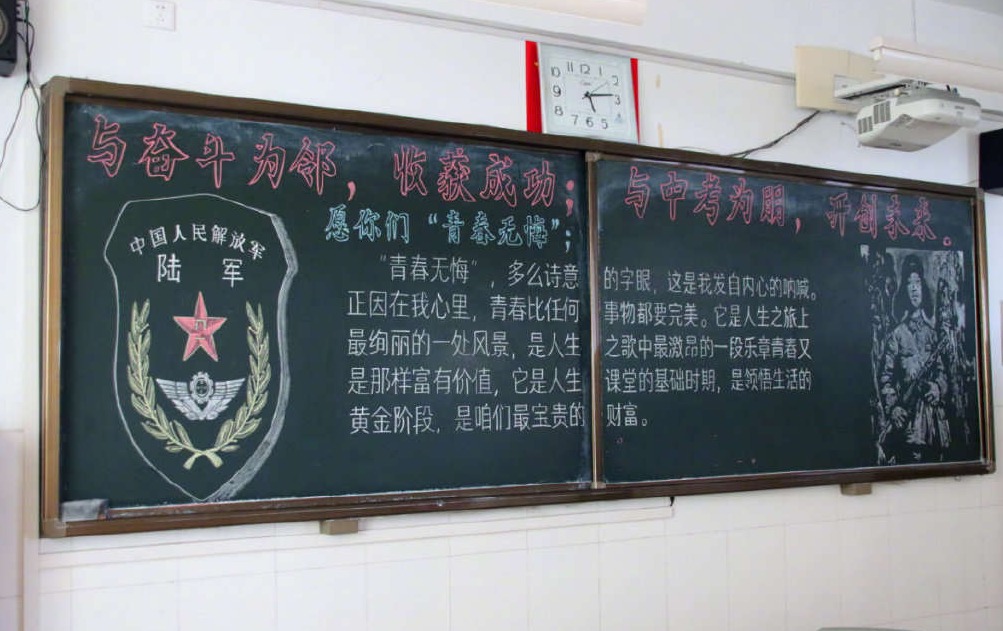 与奋斗为邻，收获成功；与中考为朋，开创未来。
愿你们“青春无悔”；
中国人民解放军
陆 军
“青春无悔”，多么诗意的字眼，这是我发自内心的呐喊。
正因在我心里，青春比任何事物都要完美。它是人生之旅上
最绚丽的一处风景，是人生之歌中最激昂的一段乐章青春又
是那样富有价值，它是人生课堂的基础时期，是领悟生活的
黄金阶段，是咱们最宝贵的财富。
11 12 1
10 2
9 3
8 4
7 6 5